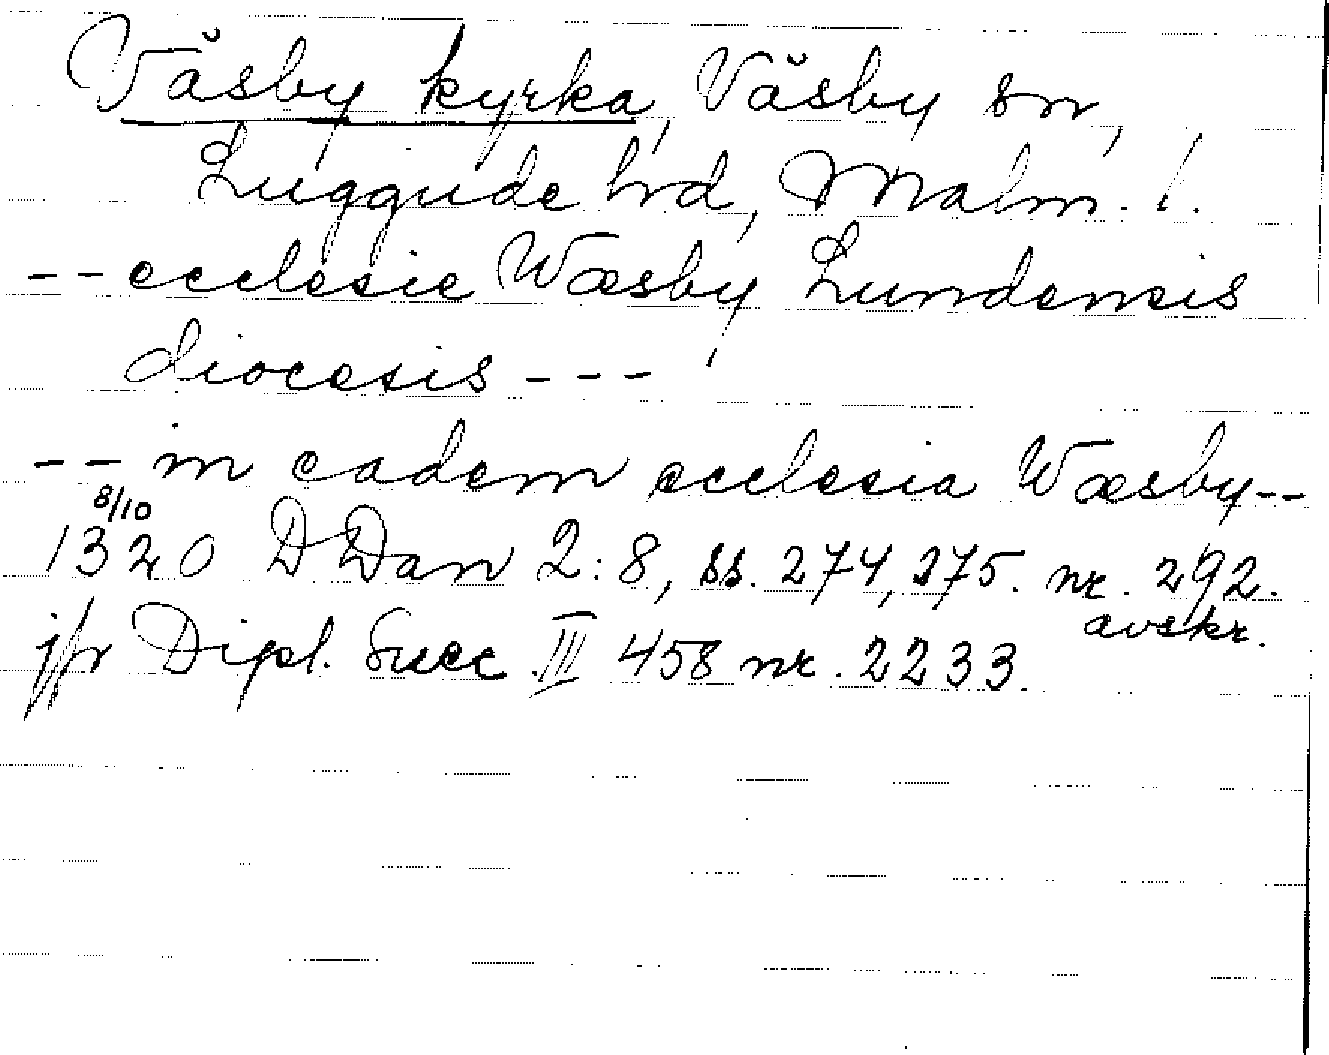 Väsby kyrka, Väsby sn,
Luggude hrd, Malm. l.
-- ecclesie Wæsby Lundensis
diocesis ---
-- in eadem ecclesia Wæsby --
8/10
1320 DDan 2:8, ss. 274, 275. nr. 292.
avskr.
jfr Dipl. Suec III 458 nr. 2233.